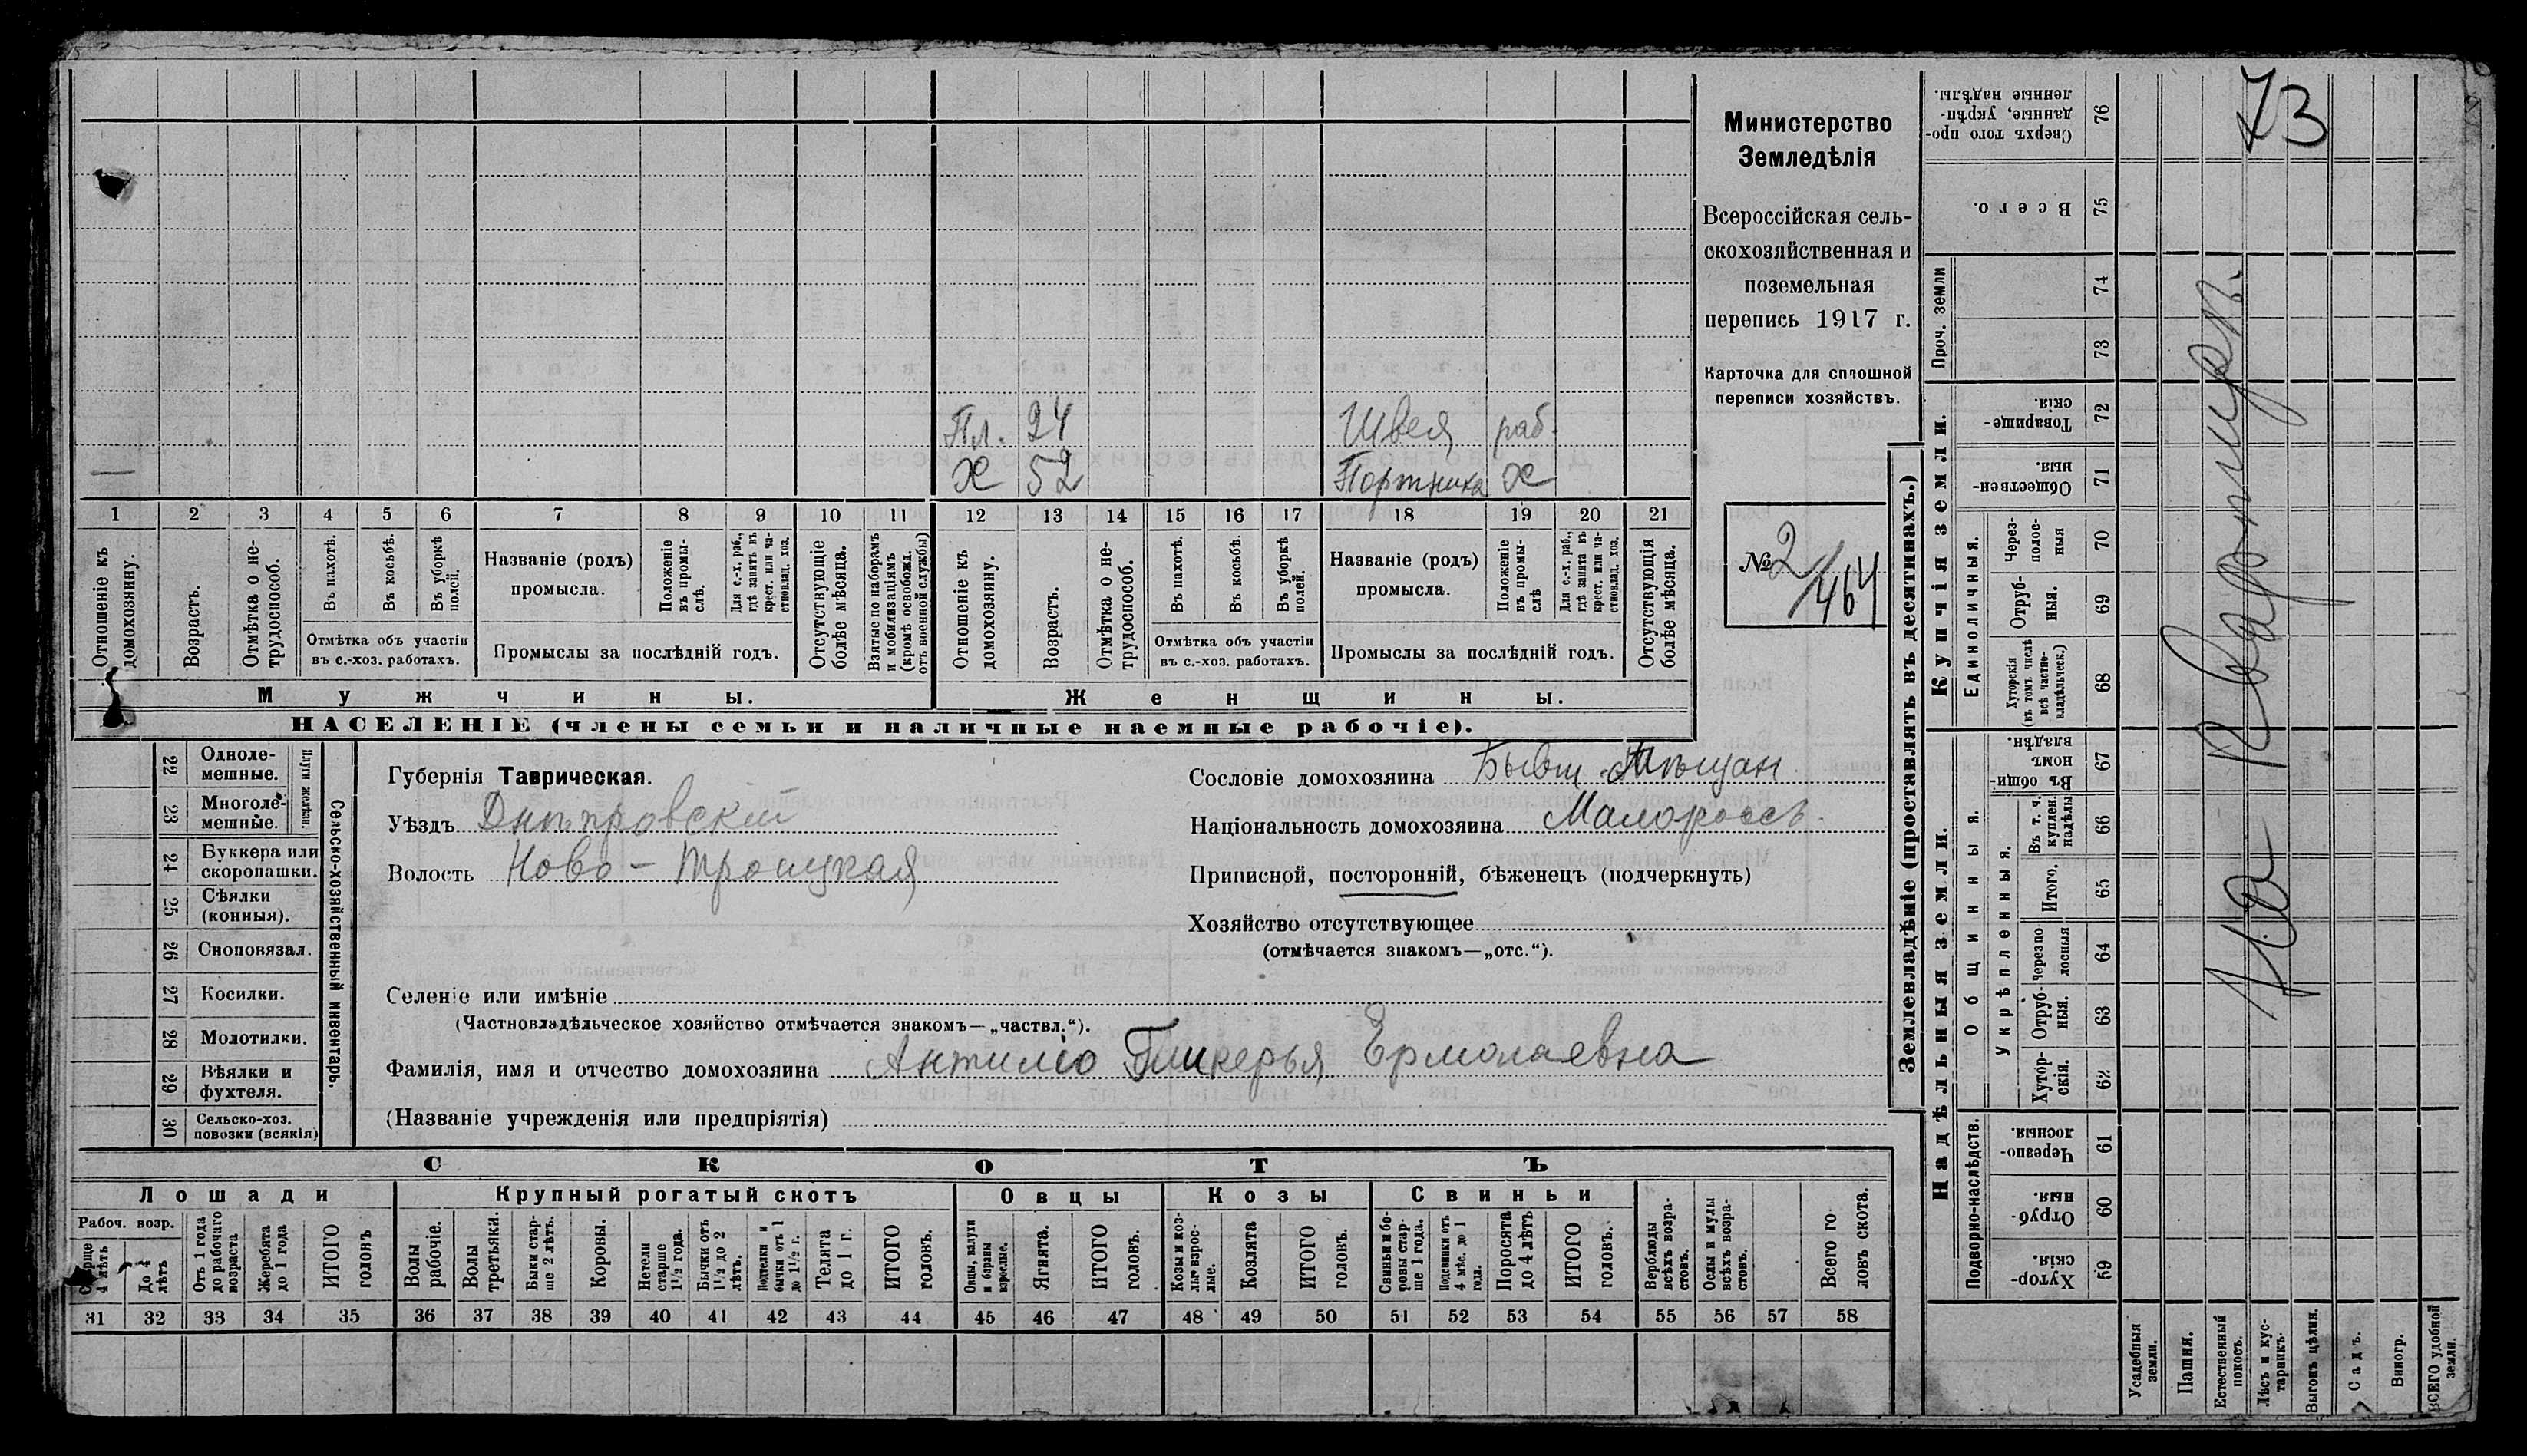 73
Министерство
Земледѣлія
Всероссійская сель-
скохозяйственная и
поземельная
перепись 1917 г.
Карточка для сплошной
переписи хозяйствъ.
№ 2/464
Пл. 24 Швея раб.
Х 52 Портниха Х
1 2 3 4 5 6 7 8 9 10 11 12 13 14 15 16 17 18 19 20 21
Отношеніе къ домохозяину.
Возрастъ.
Отмѣтка о не-трудоспособ.
Въ пахотѣ.
Въ косьбѣ.
Въ уборкѣ полей.
Отмѣтка объ участіи
въ с.-хоз. работахъ.
Названіе (родъ)
промысла.
Положеніе въ промы-слѣ.
Для с.-х. раб., гдѣ занятъ въ крест. или ча-стновлад. хоз.
Промыслы за послѣдній годъ.
Отсутствующіе болѣе мѣсяца.
Взятые по наборамъ и мобилизаціямъ (кромѣ освобожд. отъ военной службы)
Отношеніе къ домохозяину.
Возрастъ.
Отмѣтка о не-трудоспособ.
Въ пахотѣ.
Въ косьбѣ.
Въ уборкѣ полей.
Отмѣтка объ участіи
въ с.-хоз. работахъ.
Названіе (родъ)
промысла.
Положеніе въ промы-слѣ
Для с.-х. раб., гдѣ занята въ крест. или ча-стновлад. хоз.
Промыслы за послѣдній годъ.
Отсутствующія болѣе мѣсяца.
Мужчины.
Женщины.
НАСЕЛЕНІЕ (члены семьи и наличные наемные рабочіе).
22 Одноле-мешные.
23 Многоле-мешные.
Плуги желѣзн.
24 Буккера или скоропашки.
25 Сѣялки (конныя).
26 Сноповязал.
27 Косилки.
28 Молотилки.
29 Вѣялки и фухтеля.
30 Сельско-хоз. повозки (всякія)
Сельско-хозяйственный инвентарь.
Губернія Таврическая.
Уѣздъ Днѣпровскій
Волость Ново-Троицкая
Сословіе домохозяина Бывш. Мѣщан
Національность домохозяина Малороссъ.
Приписной, посторонній, бѣженецъ (подчеркнуть)
Хозяйство отсутствующее
(отмѣчается знакомъ—„отс.“).
Селеніе или имѣніе
(Частновладѣльческое хозяйство отмѣчается знакомъ—„частвл.“).
Фамилія, имя и отчество домохозяина Гликерья Ермолаевна
(Названіе учрежденія или предпріятія)
СКОТЪ
Лошади
Крупный рогатый скотъ
Овцы
Козы
Свиньи
Рабоч. возр.
Старше 4 лѣтъ
До 4 лѣтъ
Отъ 1 года до рабочаго возраста
Жеребята до 1 года
ИТОГО головъ
Волы рабочіе.
Волы третьяки.
Быки стар-ше 2 лѣтъ.
Коровы.
Нетели старше 1½ года.
Бычки отъ 1½ до 2 лѣтъ.
Подтелки и бычки отъ 1 до 1½ г.
Телята до 1 г.
ИТОГО головъ.
Овцы, валухи и бараны взрослые.
Ягнята.
ИТОГО головъ.
Козы и коз-лы взрос-лые.
Козлята
ИТОГО головъ.
Свиньи и бо-ровы стар-ше 1 года.
Подсвинки отъ 4 мѣс. до 1 года.
Поросята до 4 лѣтъ
ИТОГО головъ.
Верблюды всѣхъ возра-стовъ.
Ослы и мулы всѣхъ возра-стовъ.
Всего го-ловъ скота.
31 32 33 34 35 36 37 38 39 40 41 42 43 44 45 46 47 48 49 50 51 52 53 54 55 56 57 58
Землевладѣніе (проставлять въ десятинахъ.)
Надѣльныя земли.
Купчія земли.
Проч. земли
Подворно-наслѣдств.
Общинныя.
Укрѣпленныя.
Единоличныя.
Хутор-скія. 59
Отруб-ныя. 60
Черезпо-лосныя. 61
Хутор-скія. 62
Отруб-ныя. 63
Черезпо-лосныя 64
Итого. 65
Въ т. ч. куплен. надѣлы 66
Въ общин-номъ владѣн. 67
Хуторскія (въ томъ числѣ всѣ частно-владѣльческ.) 68
Отруб-ныя. 69
Через-полос-ныя 70
Обществен-ныя. 71
Товарище-скія. 72
73
74
Всего. 75
Сверхъ того про-данные, укрѣп-ленные надѣлы. 76
Усадебныя земли.
Пашня.
Естественный покосъ.
Лѣсъ и кус-тарникъ.
Выгонъ цѣлин.
Садъ.
Виногр.
ВСЕГО удобной земли.
На квартирѣ.